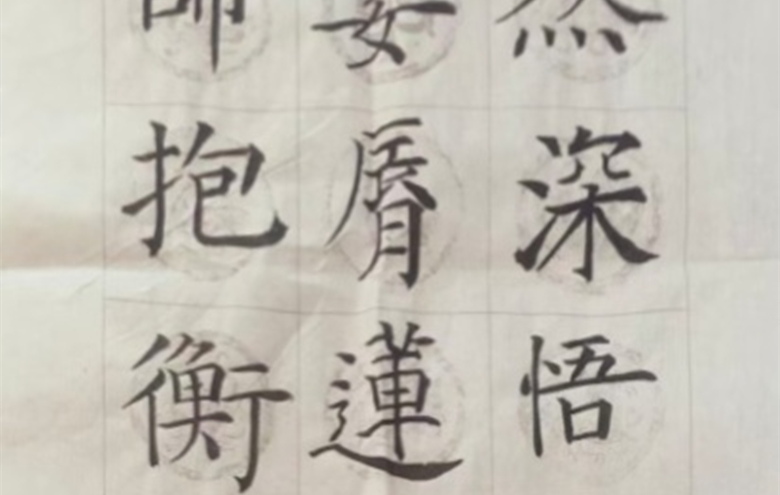 然深悟
脣蓮
師抱衡